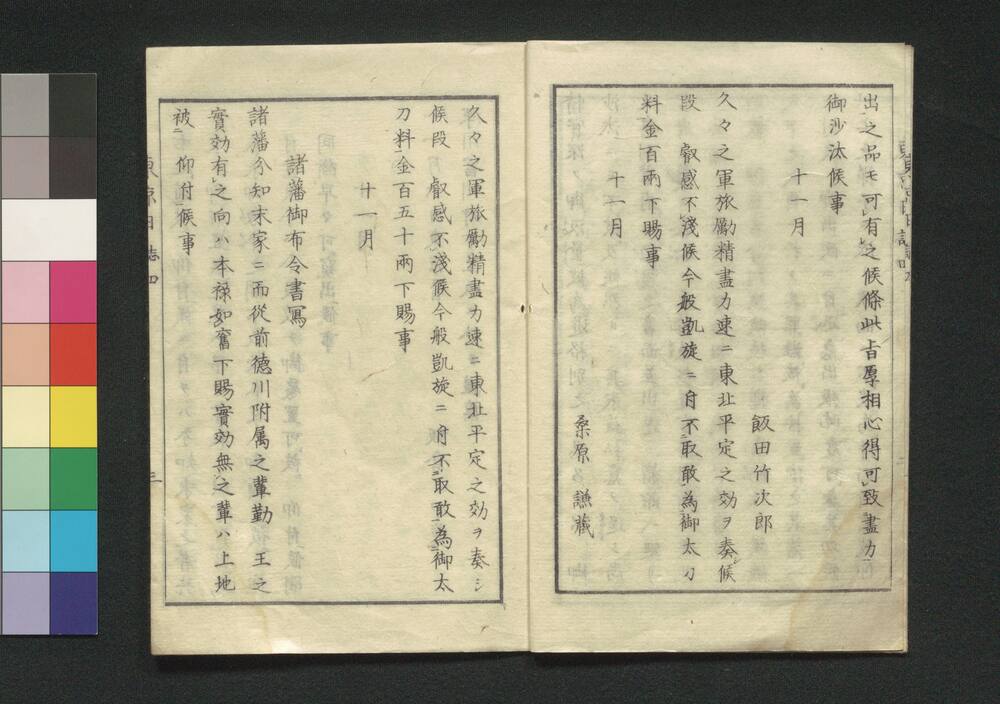 出之品モ可有之候條此旨厚相心得可致盡力
御沙汰候事
十一月
飯田竹次郎
久々之軍旅勵精盡力速ニ東北平定之効ヲ奏候
段　叡感不淺候今般凱旋ニ付不取敢為御太刀
料金百両下賜事
十一月
桒原謙藏
久々之軍旅勵精盡力速ニ東北平定之効ヲ奏シ
候段　叡感不淺候今般凱旋ニ付不取敢為御太
刀料金百五十両下賜事
十一月
諸藩御布令書寫
諸藩分知末家ニ而從前德川附属之輩勤　王之
實効有之向ハ本禄如舊下賜實効無之輩ハ上地
被　仰付候事
東京日誌四
三